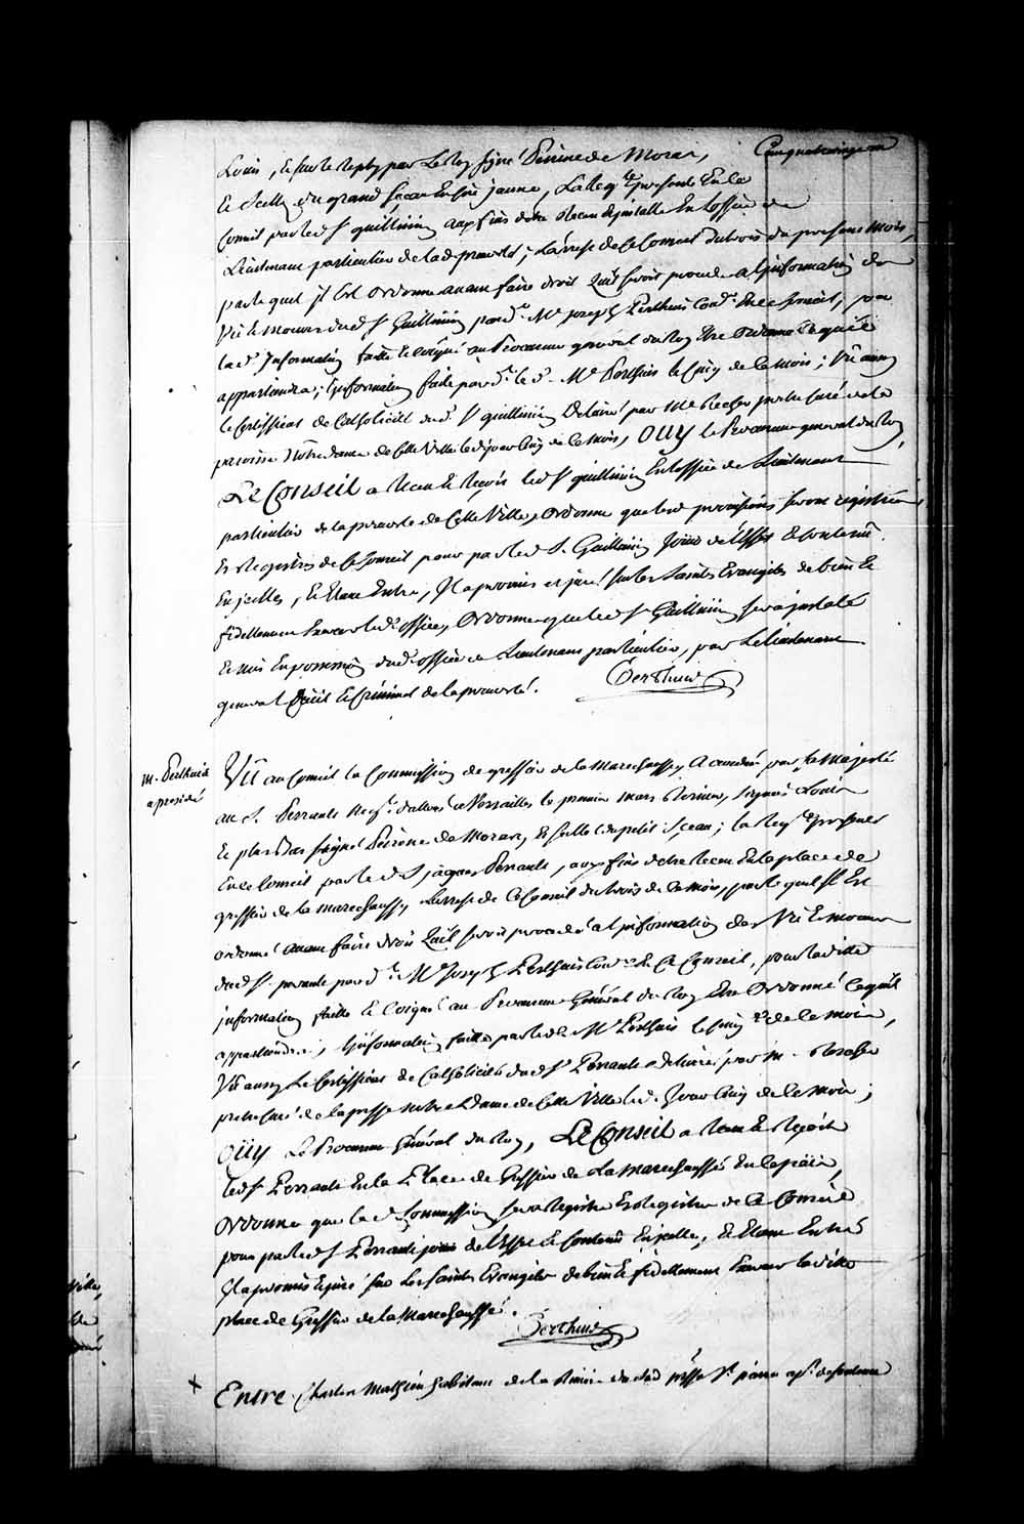 Cinq quatre vingt un
Louis, et sur le reply par le Roy signé Perrine de Moras,
et scellé du grand sceau en cire jaune, la Req.te presentée en ce
Conseil par led. S.r guillimin aux fins d'etre receu et installé en loffice de
Lieutenant particulier de lad. prevosté; larrest de ce Conseil du trois du present mois,
par lequel jl est ordonné avant faire droit quil seroit procedé a l'jnformation de
vie et moeurs dud. S.r Guillimin pard.t M.e joseph Perthuis Con.er en ce Conseil, pour
lad.e Jnformation faite et co[mmuni]quée au Procureur general du Roy etre ordonné ce qu'il
appartiendra; l'jnformation faite pard.t led. M.e Perthuis le cinq de ce mois; Vû aussy
le certifficat de Catholicité dud. S.r guillimin delivré par M.e Recher pretre curé de la
paroisse Nôtre dame de cette Ville led. jour cinq de ce mois, OUY le Procureur general du Roy,
Le Conseil a receu et reçoit led. S.r guillimin en loffice de Lieutenant
particulier de la prevosté de cette Ville, ordonne que lesd. provisions seront registrées
es Registres de ce Conseil pour par led. S. Guillimin jouir de l'effet et contenû
en jcelles, et etant entré, Jl a promis et juré sur les Saints Evangiles de bien et
fidellement exercer led. office, Ordonne que led. S.r Guillimin sera jnstallé
et mis en possession dud. office de Lieutenant particulier, par le Lieutenant
general Civil et Criminel de la prevosté.
Perthuis
M. Perthuis
a presidé
Vû au Conseil la Commission de greffier de la Marechaussée accordée par sa Majesté
au S. Perrault dattée a Versailles le premier mars dernier, signée Louis
et plus bas signé Peirenc de Moras, et scellée du petit sceau; la Req.te presentée
en ce Conseil par led. S jacques Perrault, aux fins d'etre receu en la place de
greffier de la marechaussée, larrest de ce Conseil du trois de ce mois, par lequel jl est
ordonné avant faire droit quil seroit procedé a l jnformation des vie et moeurs
dud. S.r perrault pard.t M.e Joseph Perthuis Con.er en ce Conseil, pour ladite
jnformation faite et co[mmuni]quée au Procureur Général du Roy etre ordonné ce qu'il
appartiendra; l'jnformation faite par led. M.e Perthuis le cinq de ce mois,
Vû aussy le Certifficat de Catholicité dud. S.r Perrault delivré par M. Recher
pretre curé de la p.sse notre Dame de cette Ville led. jour cinq de ce mois;
OÜY Le Procureur Général du Roy, Le Conseil a receu et reçoit
led. S.r Perrault en la Place de Greffier de La Marechaussée en ce païs,
Ordonne que lad. Commission sera registrée es Registres de ce Conseil
pour par led. S.r Perrault jouir de l'effet et contenu en jcelle, et etant entré
Jl a promis et juré sur les Saints Evangiles de bien et fidellement exercer ladite
place de Greffier de la Marechaussé.
Perthuis
Entre Charles Mathieu habitant de la Riviere du sud p.sse S.t pierre ap.t defendeur